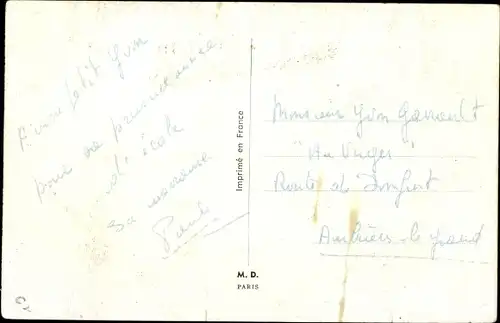 A mon petit Yvon
pour sa première année
d'école
sa marraine
Paule
Imprimé en France
M. D.
PARIS
Monsieur Yvon
"Au Verger"
Route de
Ambières-le-grand